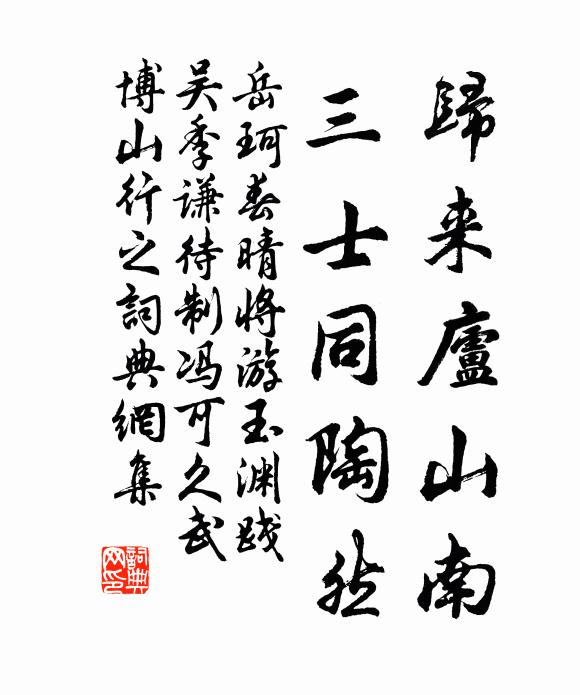 歸来廬山南
三士同陶然
岳珂春晴將游玉渊践
吴季谦待制冯可久武
博山行之詞典網集
詞典网印